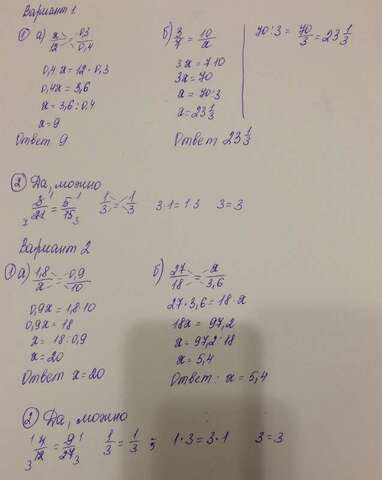 Вариант 1
① а) x/12 = 0,3/0,4
0,4 x = 12 · 0,3
0,4x = 3,6
x = 3,6 : 0,4
x = 9
Ответ 9
б) 3/7 = 10/x
3x = 7·10
3x = 70
x = 70:3
x = 23 1/3
Ответ 23 1/3
70:3 = 70/3 = 23 1/3
② Да, можно
5/15 1/3 = 1/3 3·1 = 1·3 3=3
Вариант 2
① а) 1,8/x = 0,9/10
0,9x = 1,8·10
0,9x = 18
x = 18:0,9
x = 20
Ответ x = 20
б) 27/18 = x/3,6
27·3,6 = 18·x
18x = 97,2
x = 97,2:18
x = 5,4
Ответ: x = 5,4
② Да, можно
4/12 = 9/27 1/3 = 1/3 ; 1·3 = 3·1 3=3